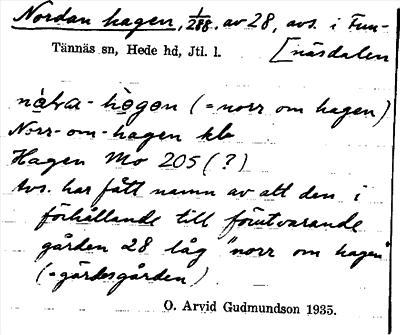 Nordan hagen, 1/288 av 28, avs. i Fun-
Tännäs sn, Hede hd, Jtl. l. [näsdalen
(=norr om hagen)
Norr-om-hagen kb
Hagen Mo 205 (?)
Avs. har fått namn av att den i
förhållande till förutvarande
gården 28 låg "norr om hagen"
(=gärdesgården)
O. Arvid Gudmundson 1935.